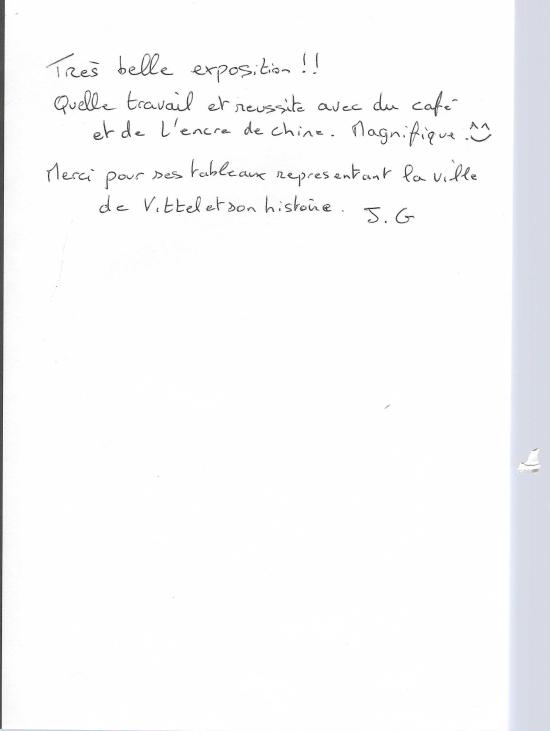 Très belle exposition !!
Quelle travail et reussite avec du café
et de L'encre de chine. Magnifique. ^^
Merci pour ses tableaux representant la ville
de Vittel et son histoire. J. G